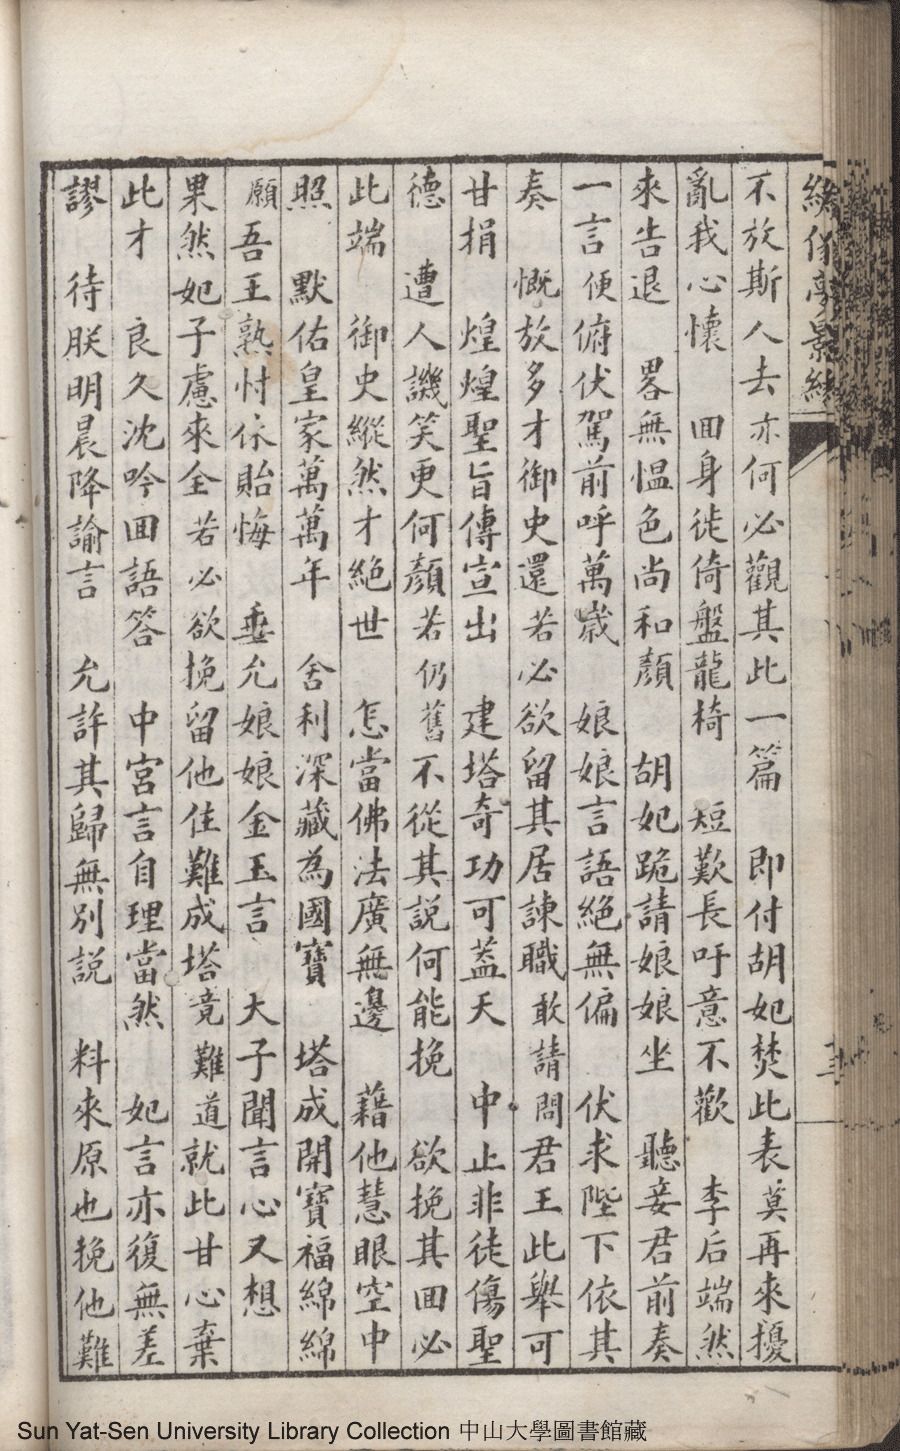 不放斯人去亦何必觀其此一篇　即付胡妃焚此表莫再來擾
亂我心懷　回身徙倚盤龍椅　短歎長吁意不歡　李后端然
來告退　畧無慍色尚和顏　胡妃跪請娘娘坐　聽妾君前奏
一言便俯伏駕前呼萬歲　娘娘言語絕無偏　伏求陛下依其
奏　慨放多才御史還若必欲留其居諫職敢請問君王此舉可
甘捐　煌煌聖旨傳宣出　建塔奇功可蓋天　中止非徒傷聖
德　遭人譏笑更何顏若仍舊不從其説何能挽　欲挽其回必
此端　御史縱然才絕世　怎當佛法廣無邊　藉他慧眼空中
照　默佑皇家萬萬年　舍利深藏為國寶　塔成開寶福綿綿
願吾王熟忖休貽悔　垂允娘娘金玉言　大子聞言心又想
果然妃子慮來全若必欲挽留他住難成塔竟難道就此甘心棄
此才　良久沈吟回語答　中宮言自理當然　妃言亦復無差
謬　待朕明晨降諭言　允許其歸無別説　料來原也挽他難
Sun Yat-Sen University Library Collection 中山大學圖書館藏